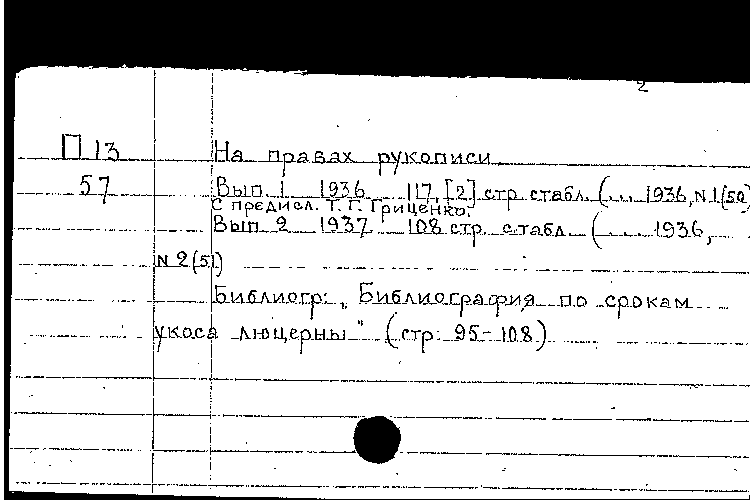 2
П 13 На правах рукописи
57 Вып. 1 1936 117, [2] стр. с табл. (... 1936, N 1(50)
С предисл. Т. Г. Гриценко.
Вып. 2 1937 108 стр. с табл. (... 1936,
N 2(51)
Библиогр: „Библиография по срокам
укоса люцерны" (стр: 95-108)